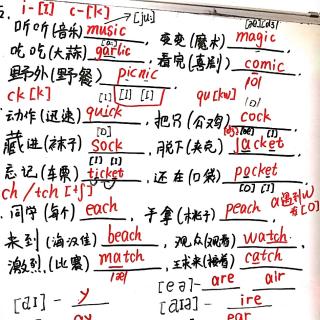 i-[I] c-[k] [ju:]
听听(音乐) music 变变(魔术) magic
吃吃(大蒜) garlic 看完(喜剧) comic
野外(野餐) picnic
[I] [I] [ɒ]
ck [k] qu [kw]
动作(迅速) quick 把只(公鸡) cock
藏进(袜子) sock 脱下(夹克) jacket
忘记(车票) ticket 还在(口袋) pocket
ch / tch [tʃ]
同学(每个) each 手拿(桃子) peach a遇到w 发[ɒ]
来到(海滩) beach 观众(观看) watch
激烈(比赛) match 球来(接着) catch
[æ] [eə]- are air
[aI] - y [aIə]- ire